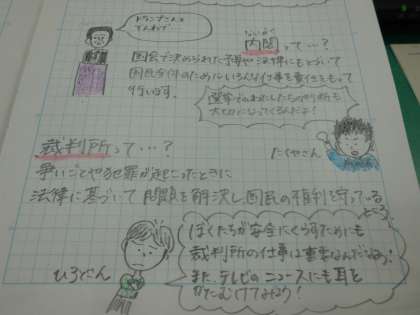 トランプさんと
でんわで
ないかく
内閣って…？
国会で決められた予算や法律にもとづいて
国民全体のためにいろんな仕事を責任をもって
行います。
選挙は わたしたちの判断も
大切になってくるんだよ！
たくやさん
裁判所って…？
争いごとやる犯罪が起こったときに
法律に基づいて 問題を解決し国民の権利を守っている
ところ。
ぼくたちが安全にくらすためにも
裁判所の仕事は重要なんだなあ。
また、テレビのニュースにも耳を
かたむけてみよう！
ひろとくん